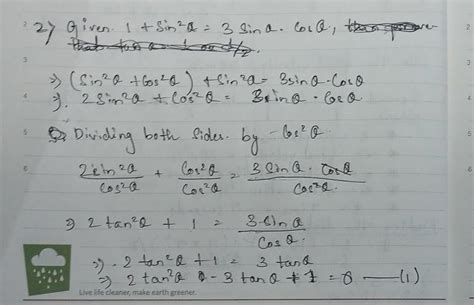 2) Given. 1 + Sin²θ = 3 Sinθ. Cosθ,
⇒ (Sin²θ + Cos²θ) + Sin²θ = 3sinθ. Cosθ
⇒. 2Sin²θ + Cos²θ = 3sinθ. Cosθ.
Dividing both Sides. by Cos²θ
2sin²θ/Cos²θ + Cos²θ/Cos²θ = 3 Sinθ. Cosθ/Cos²θ.
⇒ 2 tan²θ + 1 = 3 Sinθ/Cosθ.
⇒ 2 tan²θ + 1 = 3 tanθ
⇒ 2 tan²θ - 3 tanθ + 1 = 0 —(1)
Live life cleaner, make earth greener.